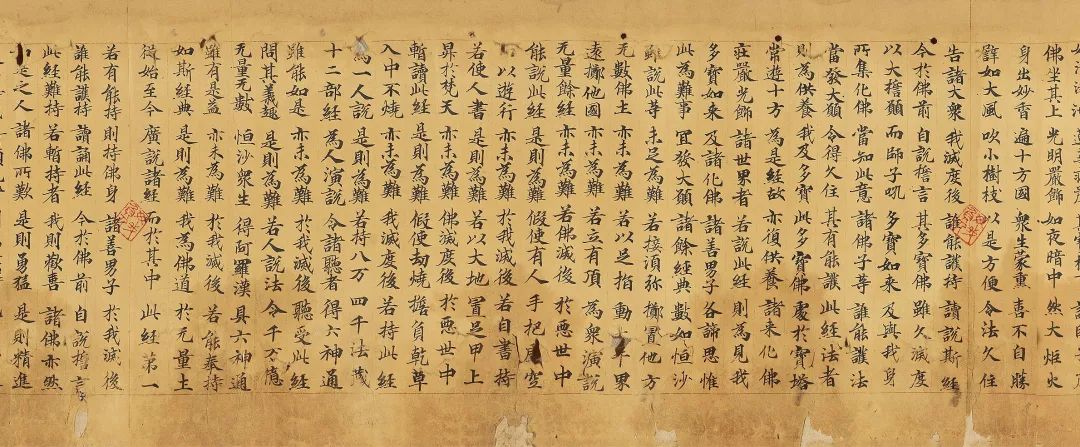 佛坐其上 光明嚴飾 如夜暗中 然大炬火
身出妙香 遍十方國 衆生蒙薰 喜不自勝
譬如大風 吹小樹枝 以是方便 令法久住
告諸大衆 我滅度後 誰能護持 讀說斯經
今於佛前 自說誓言 其多寶佛 雖久滅度
以大誓願 而師子吼 多寶如來 及與我身
所集化佛 當知此意 諸佛子等 誰能護法
當發大願 令得久住 其有能護 此經法者
則為供養 我及多寶 此多寶佛 處於寶塔
常遊十方 為是經故 亦復供養 諸來化佛
莊嚴光飾 諸世界者 若說此經 則為見我
多寶如來 及諸化佛 諸善男子 各諦思惟
此為難事 宜發大願 諸餘經典 數如恒沙
雖說此等 未足為難 若接須弥 擲置他方
无數佛土 亦未為難 若以足指 動千界
遠擲他國 亦未為難 若立有頂 為衆演說
无量餘經 亦未為難 若佛滅後 於惡世中
能說此經 是則為難 假使有人 手把虛空
以遊行 亦未為難 於我滅後 若自書持
若使人書 是則為難 若以大地 置足甲上
昇於梵天 亦未為難 佛滅度後 於惡世中
暫讀此經 是則為難 假使劫燒 擔負乾草
入中不燒 亦未為難 我滅度後 若持此經
為一人說 是則為難 若持八万 四千法藏
十二部經 為人演說 令諸聽者 得六神通
雖能如是 亦未為難 於我滅後 聽受此經
問其義趣 是則為難 若人說法 令千万億
无量无數 恒沙衆生 得阿羅漢 具六神通
雖有是益 亦未為難 於我滅後 若能奉持
如斯經典 是則為難 我為佛道 於无量土
從始至今 廣說諸經 而於其中 此經第一
若有能持 則持佛身 諸善男子 於我滅後
誰能護持 讀誦此經 今於佛前 自說誓言
此經難持 若暫持者 我則歡喜 諸佛亦然
是之人 諸佛所歎 是則勇猛 是則精進